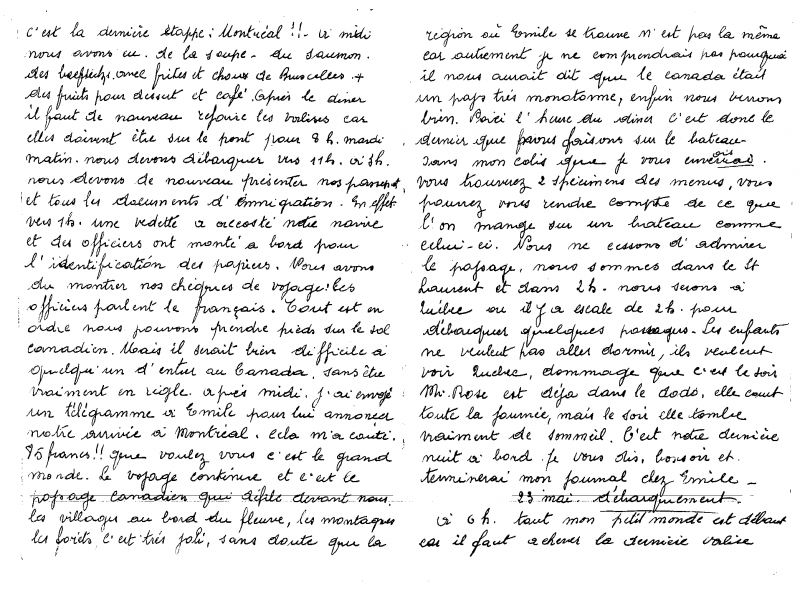 c'est la dernière étappe : Montréal !! - à midi
nous avons eu de la soupe - du saumon.
des beefsteks avec frites et choux de Bruxelles +
des fruits pour dessut et café. après le diner
il faut de nouveau refaire les valises car
elles doivent être sur le pont pour 8 h. mardi
matin. nous devons débarquer vers 11 h. à 3 h.
nous devons de nouveau présenter nos passeports,
et tous les documents d'Emmigration. En effet
vers 1 h. une vedette a accosté notre navire
et des officiers ont monté à bord pour
l'identification des papiers. Nous avons
du montrer nos chèques de voyage. les
officiers parlent le français. Tout est en
ordre nous pouvons prendre pieds sur le sol
canadien. Mais il serait bien difficile à
quelqu'un d'entrer au Canada. sans être
vraiment en règle. après midi. j'ai envoyé
un télégramme à Emile pour lui annoncer
notre arrivée à Montréal. cela m'a couté.
85 francs !! que voulez vous c'est le grand
monde. le voyage continue et c'est le
paysage canadien qui défile devant nous.
les villages au bord du fleuve, les montagnes
les forêts c'est très joli, sans doute que la
région où Emile se trouve n'est pas la même
car autrement je ne comprendrais pas pourquoi
il nous aurait dit que le canada était
un pays très monotonne, enfin nous verrons
bien. Voici l'heure du diner c'est donc le
dernier que nous faisons sur le bateau -
dans mon colis que je vous enverrai.
vous trouverez 2 spécimens des menus, vous
pourrez vous rendre compte de ce que
l'on mange sur un bateau comme
celui-ci. Nous ne cessons d'admirer
le paysage, nous sommes dans le St
Laurent et dans 2 h. nous serons à
Québec ou il y a escale de 2 h. pour
débarquer quelques passagers - Les enfants
ne veulent pas aller dormir, ils veulent
voir Quebec, dommage que c'est le soir
M. Rose est déja dans le dodo, elle court
toute la journée, mais le soir elle tombe
vraiment de sommeil. C'est notre dernière
nuit à bord. Je vous dis, bonsoir et
terminerai mon journal chez Emile -
23 mai. débarquement.
à 6 h. tout mon petit monde est débout
car il faut achever la dernière valise